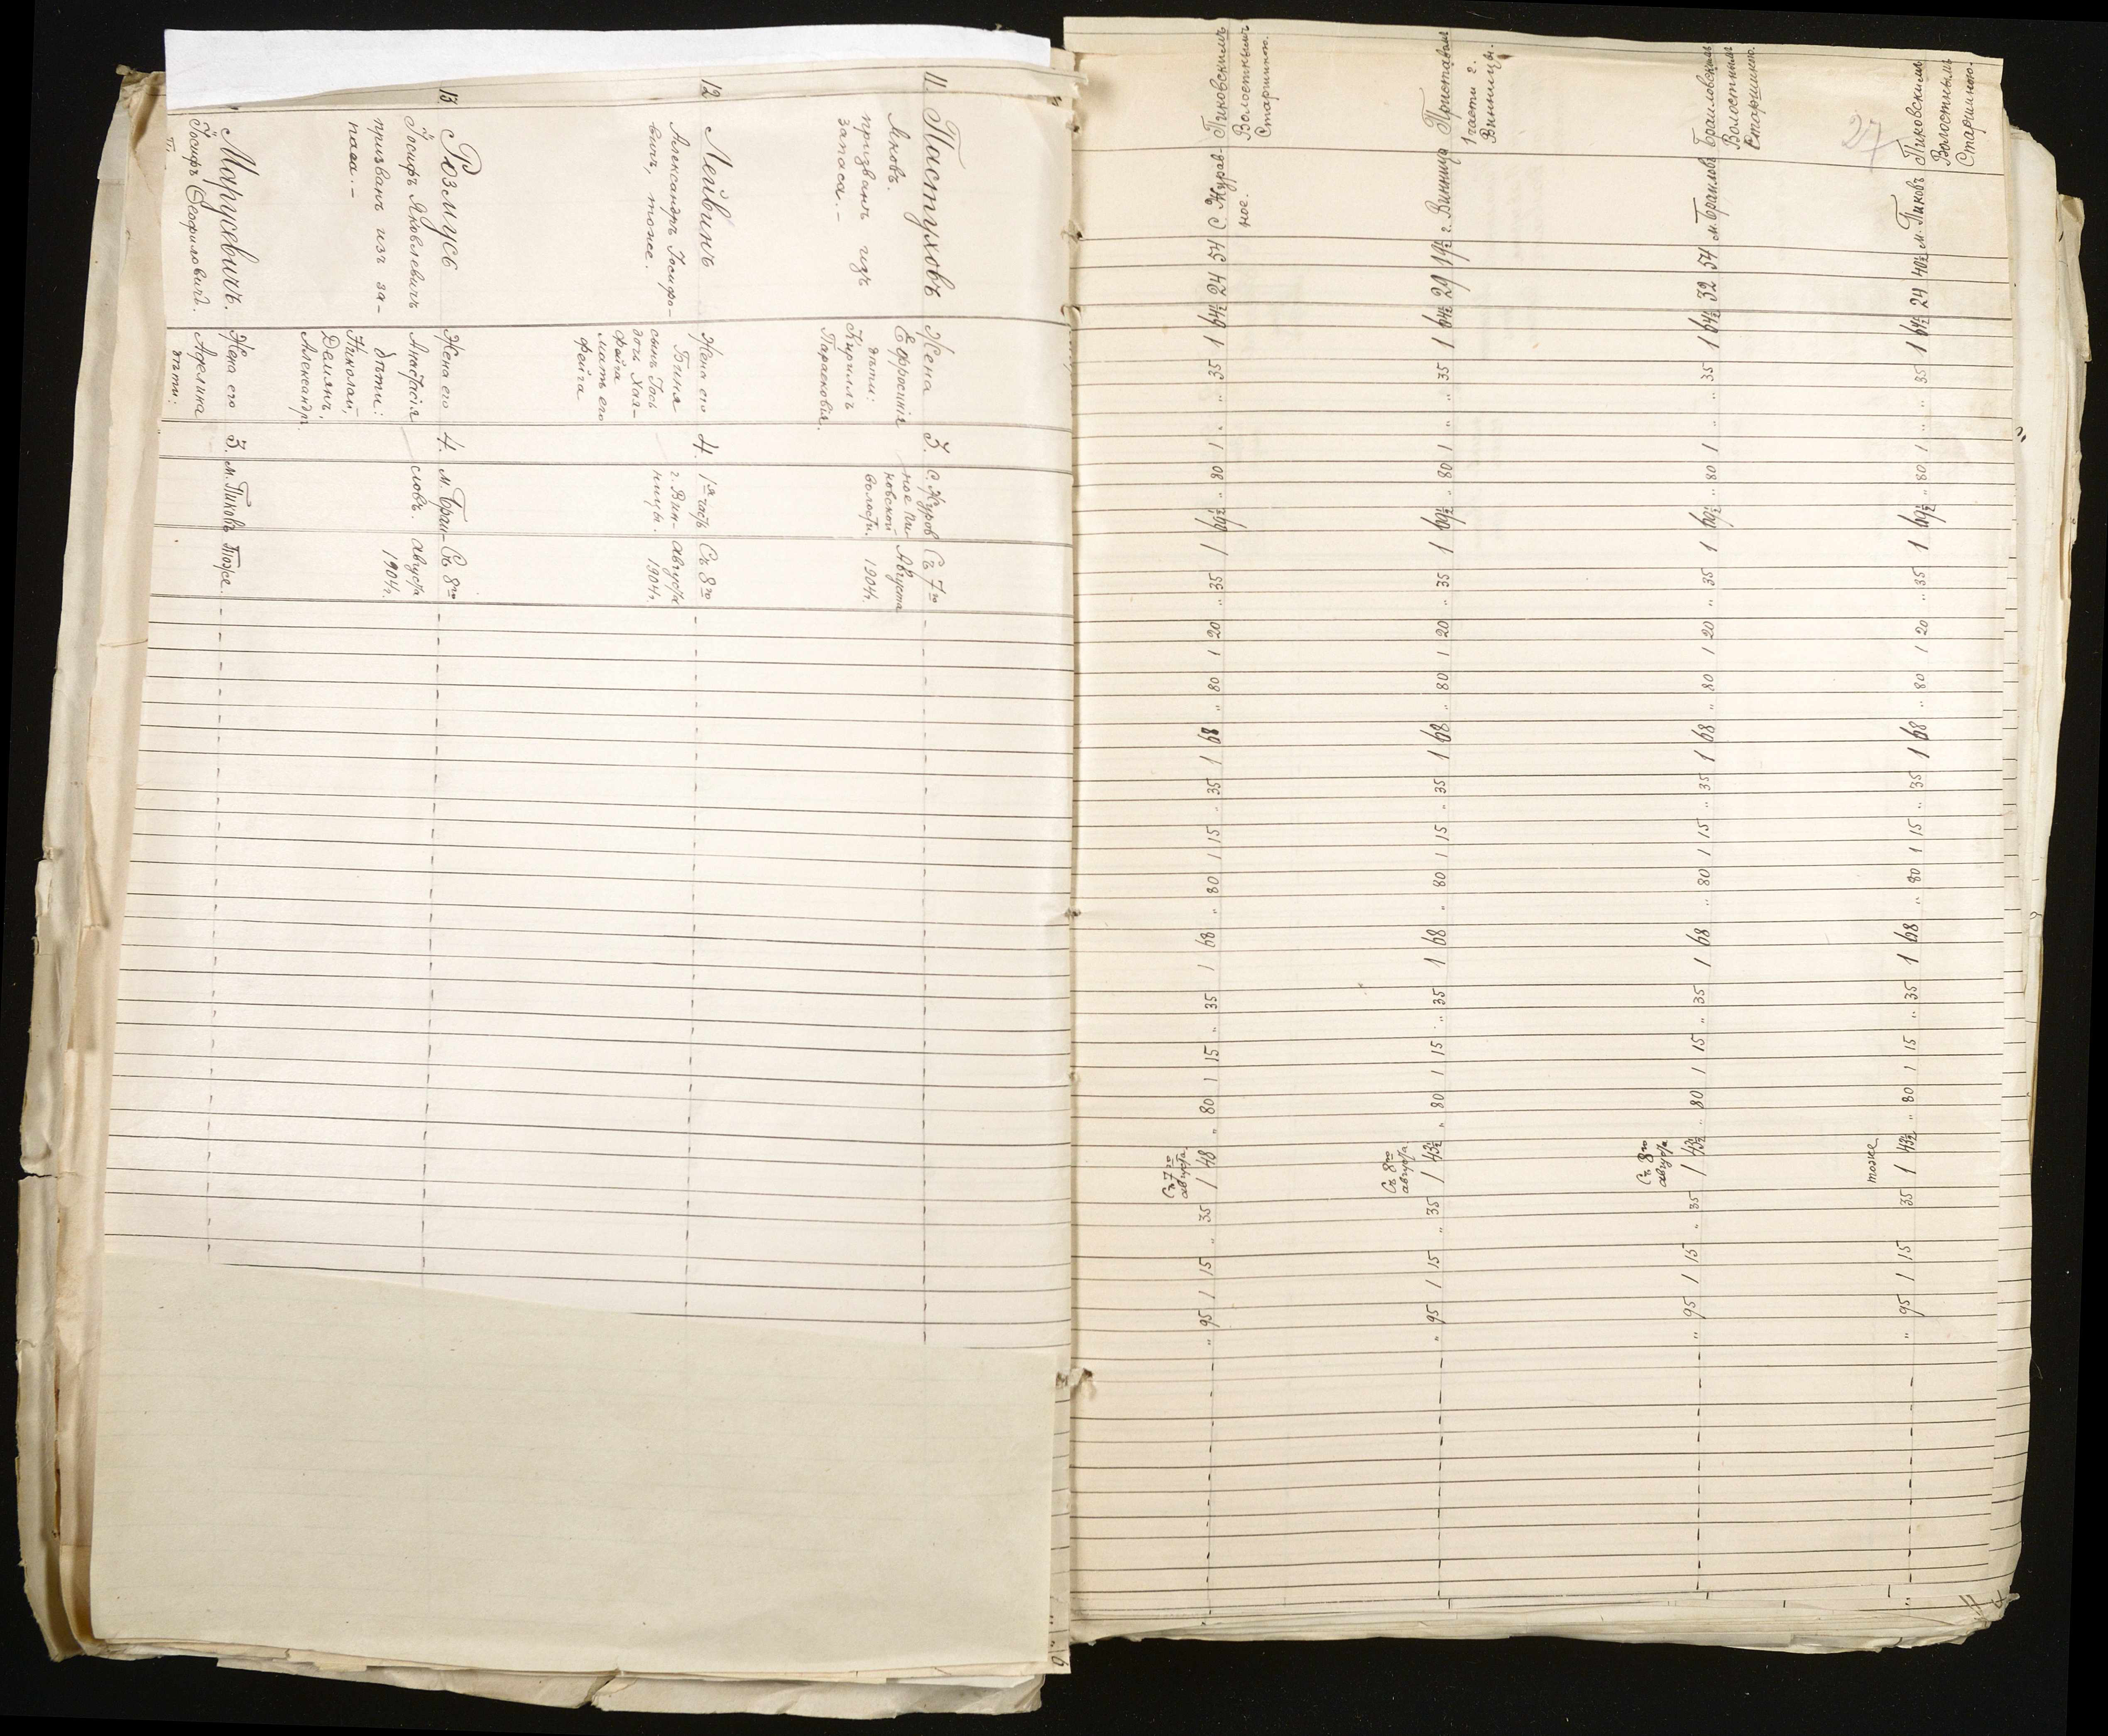 11. Пастуховъ
Яковъ.
призванъ изъ
запаса. -
Жена
Ефросинія
дѣти:
Кириллъ
Парасковія.
3.
С. Журав
ное Пи-
ковской
волости.
Съ 7го
Августа
1904г.
12 Лейвинъ
Александръ Іосифо-
вичъ, тоже.
Жена его
Бина
сынъ
дочь Хая-
фейга
мать его
фейга
4.
1я часть
г. Вин-
ницы.
Съ 8го
августа
1904г.
13. Розмусъ
Іосифъ Яковлевичъ
призванъ изъ за-
паса. -
Жена его
Анастасія
дѣти:
Николай,
Демянъ,
Александръ.
4.
м. Браи-
ловъ.
Съ 8го
августа
1904г.
Марусевичъ.
Іосифъ Феофиловичъ.
Жена его
Аделина
дѣти:
3.
м. Пиковъ
Тоже.
27
" 95 1 15 " 35 1 48 " 80 1 15 " 35 1 68 " 80 1 15 " 35 1 68 " 80 1 20 " 35 1 69½ " 80 1 " " 35 1 64½ 24 54 С. Журав- Пиковскимъ
Съ 7го
августа
ное.
Волостнымъ
Старшиною.
" 95 1 15 " 35 1 43½ " 80 1 15 " 35 1 68 " 80 1 15 " 35 1 68 " 80 1 20 " 35 1 69½ " 80 1 " " 35 1 64½ 29 14½ г. Винница Приставомъ
Съ 8го
августа
1 части г.
Винницы.
" 95 1 15 " 35 1 43½ " 80 1 15 " 35 1 68 " 80 1 15 " 35 1 68 " 80 1 20 " 35 1 69½ " 80 1 " " 35 1 64½ 32 54 м. Браиловъ Браиловскимъ
Съ 8го
августа
Волостнымъ
Старшиною.
" 95 1 15 35 1 43½ " 80 1 15 " 35 1 68 " 80 1 15 " 35 1 68 " 80 1 20 " 35 1 69½ " 80 1 " " 35 1 64½ 24 40½ м. Пиковъ Пиковскимъ
тоже
Волостнымъ
Старшиною.